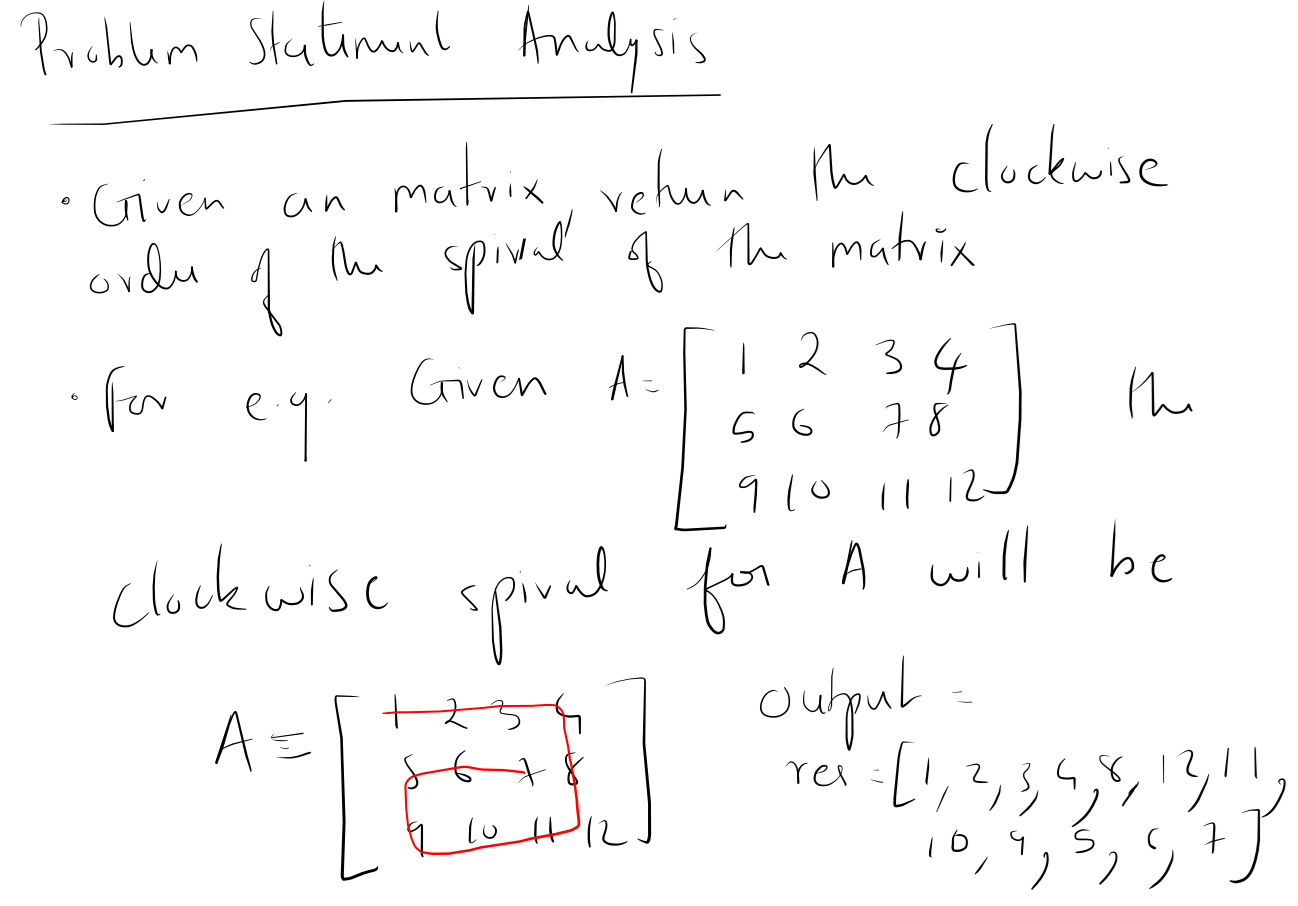 Problem Statement Analysis
• Given an matrix, return the clockwise
order of the spiral of the matrix
• For e.g. Given A = [ 1 2 3 4 the
5 6 7 8
9 10 11 12 ]
clockwise spiral for A will be
A = [ 1 2 3 4
5 6 7 8
9 10 11 12 ]
output =
res = [1, 2, 3, 4, 8, 12, 11,
10, 9, 5, 6, 7]